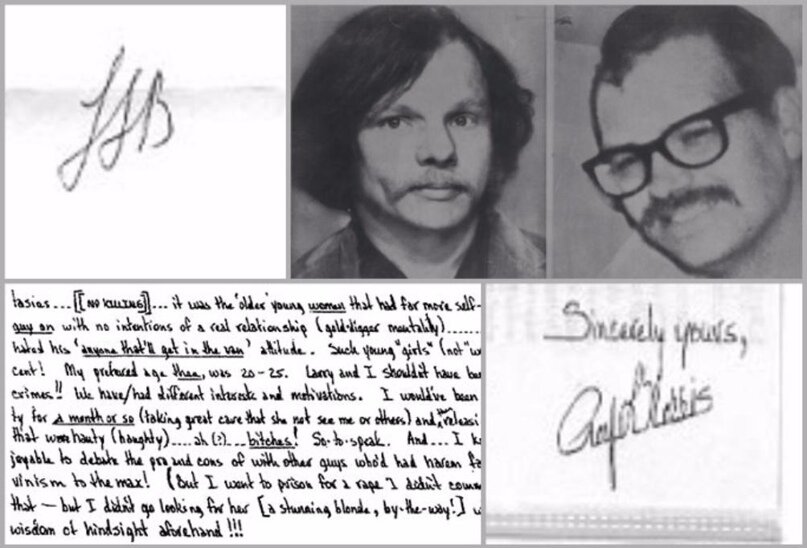 LSB
tasies... [[NO KILLING]]... it was the 'older' young women that had far more self-
guy on with no intentions of a real relationship (gold-digger mentality).......
hated his 'anyone that'll get in the van' attitude. Such young "girls" (not "w
cent! My prefered age then, was 20-25. Larry and I shouldn't have be
crimes!! We have/had different interests and motivations. I would've been
ty for a month or so (taking great care that she not see me or others) and, then releasi
that were hauty (haughty)....ah (?)...bitches! So-to-speak. And... I k
joyable to debate the pro and cons of with other guys who'd had harem fa
vinism to the max! (But I went to prison for a rape I didn't comm
that — but I didn't go looking for her [a stunning blonde, by-the-way!] w
wisdom of hindsight aforehand!!!
Sincerely yours,